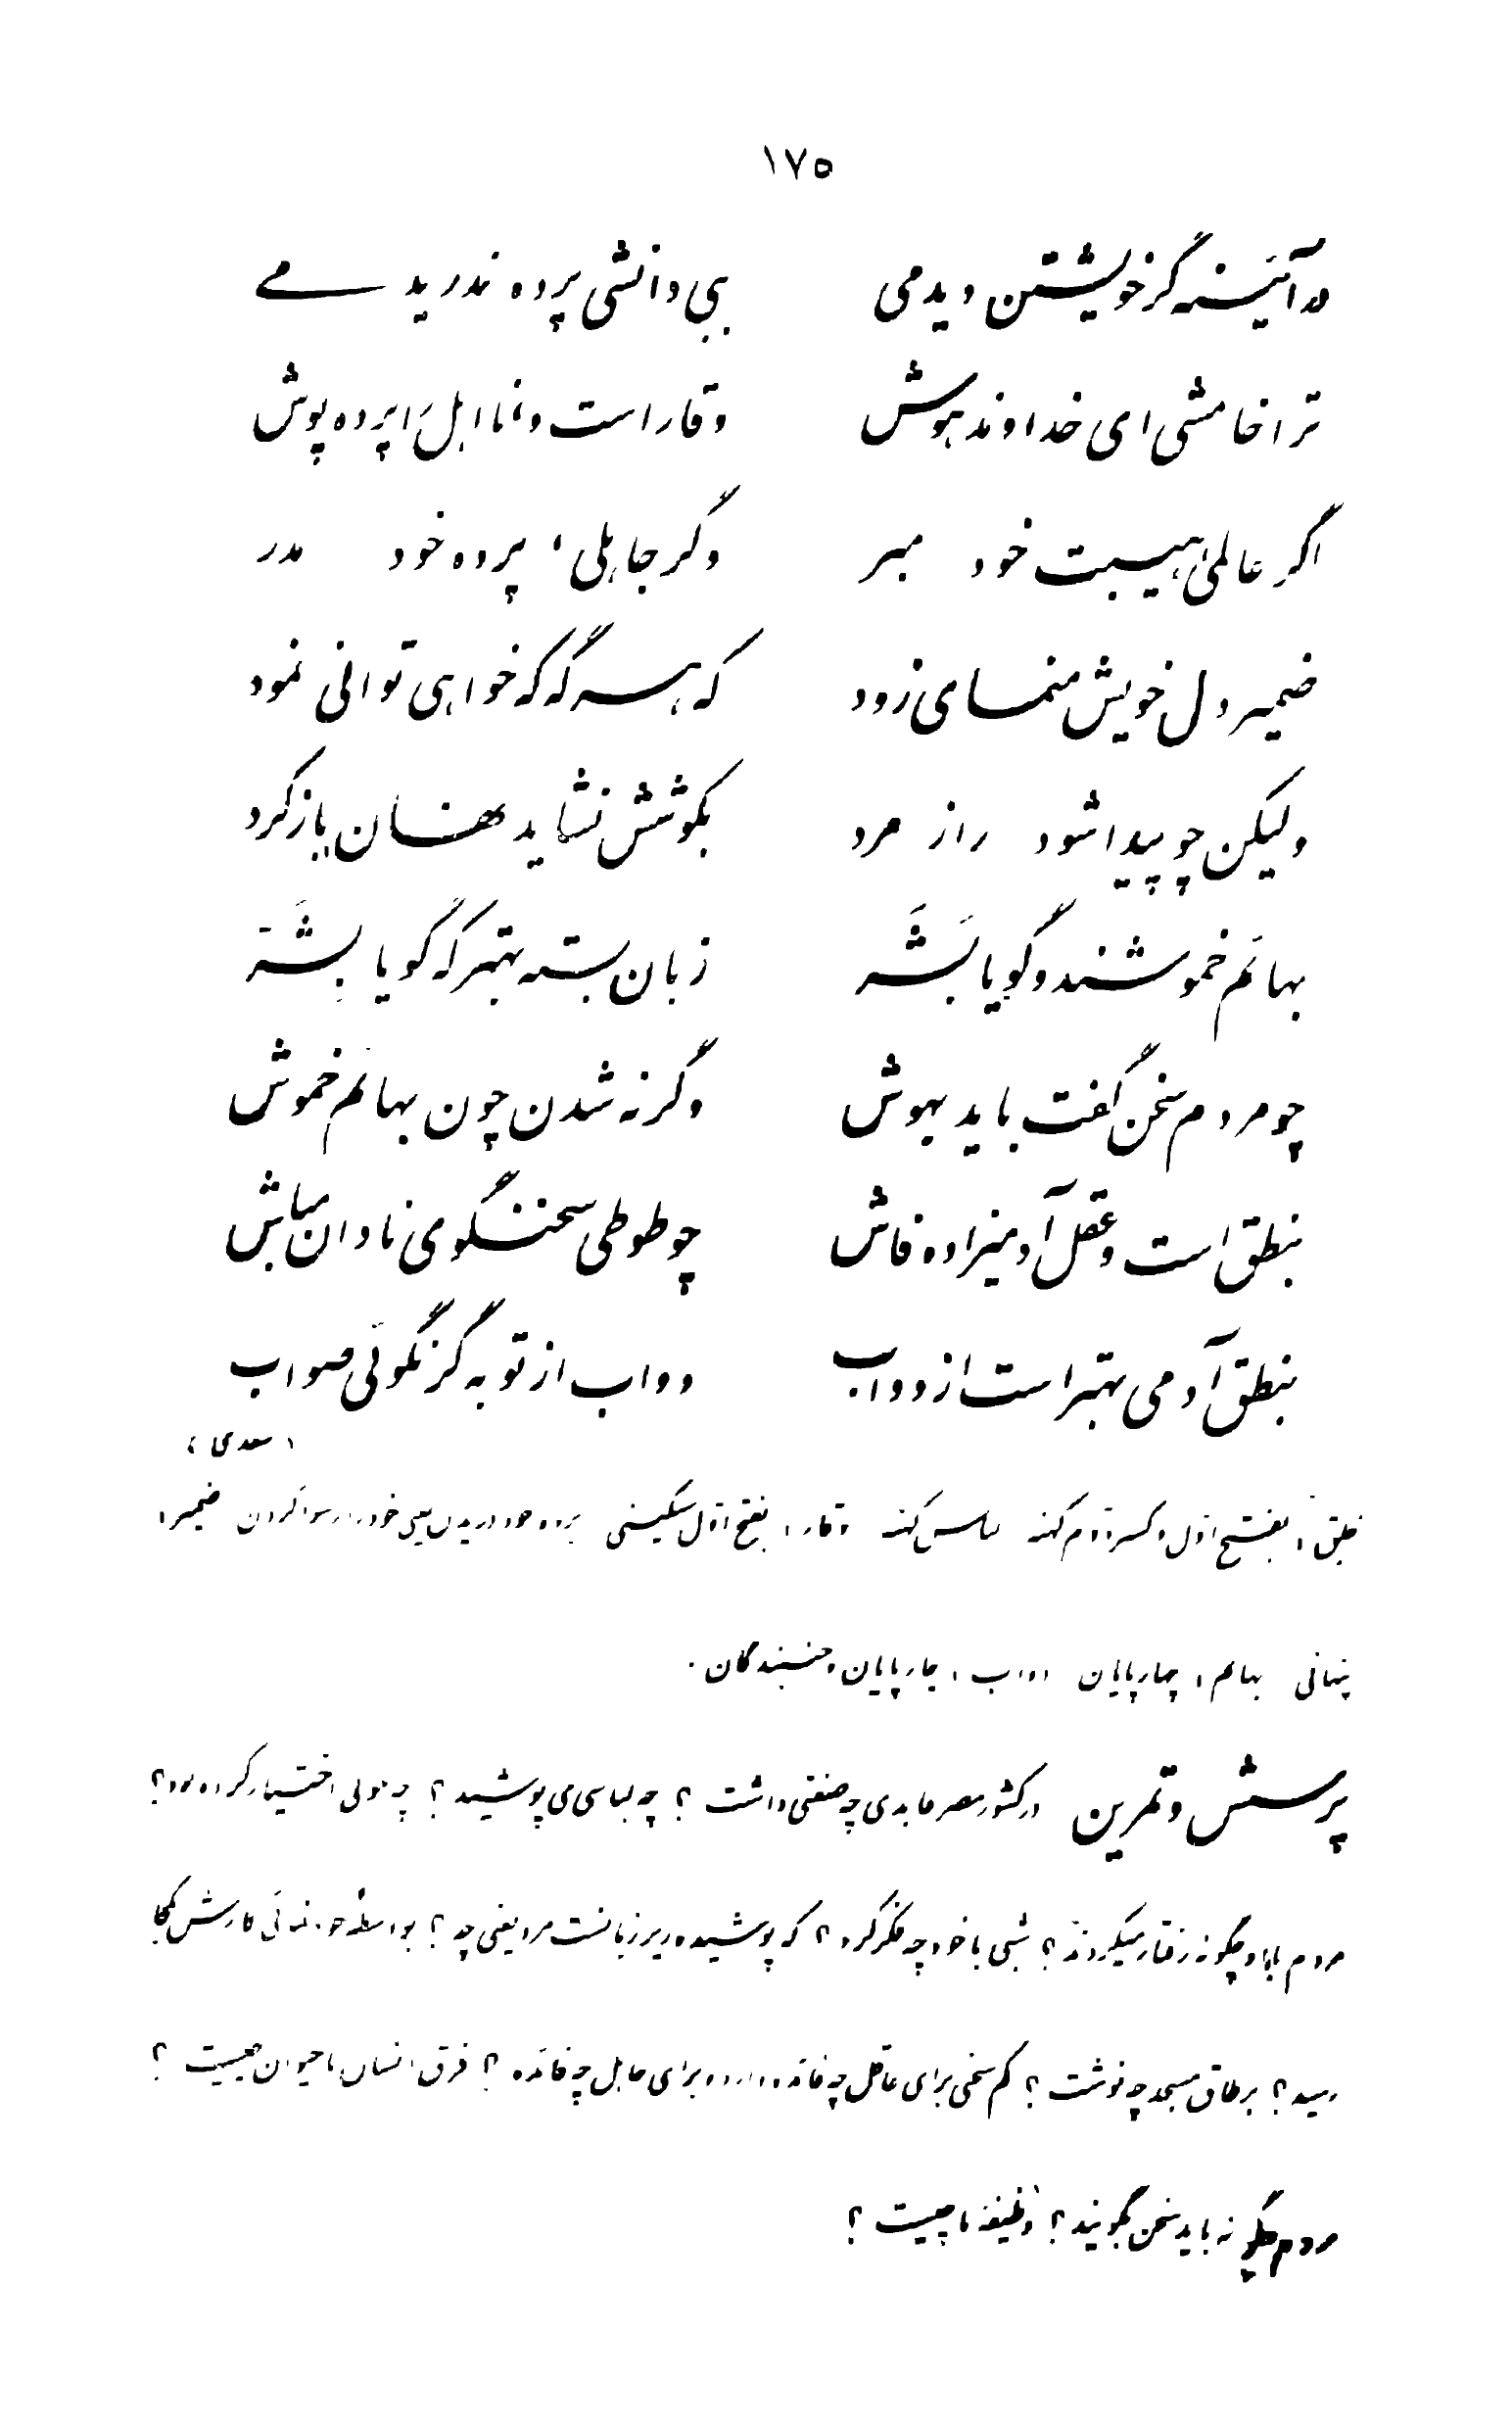 ۱۷۵
در آئینه گر خویشتن دیدمی    ببی دانشی پرده ندریدمی
ترا خامشی ای خداوند هوش    وقار است و، نا اهل را پرده پوش
اگر عالمی، هیبت خود مبر    وگر جاهلی، پرده خود مدر
ضمیر دل خویش منمای زود    که هر گه که خواهی توانی نمود
ولیکن چو پیدا شود راز مرد    بکوشش نشاید نهان باز کرد
بهائم خموشند و گویا بَشَر    زبان بسته بهتر که گویا بشَر
چو مردم سخن گفت باید بهوش    وگرنه شدن چون بهائم خموش
بنطق است و عقل آدمیزاده فاش    چو طوطی سخنگوی نادان مباش
بنطق آدمی بهتر است از دواب    دواب از تو به گر نگوئی صواب
( سعدی )
خلق : بفتح اول و کسر دوم کهنه لباس کهنه وقار : بفتح اول سنگینی پرده خود دریدن یعنی خود را رسوا کردن ضمیر :
پنهانی بهائم : چهارپایان دواب : چارپایان و جنبندگان .
پرسش و تمرین در کشور مصر عابدی چه صفتی داشت ؟ چه لباسی می پوشید ؟ چه اختیار کرده بود ؟
مردم با او چگونه رفتار میکردند ؟ شبی با خود چه فکر کرد ؟ که پوشیده زیر زبانست مرد یعنی چه ؟ بواسطه خودنمائی کارش بکجا
رسید ؟ بر طاق مسجد چه نوشت ؟ کم سخنی برای عاقل چه فائده دارد و برای جاهل چه فائده ؟ فرق انسان با حیوان چیست ؟
مردم چگونه باید سخن بگویند ؟ وظیفه ما چیست ؟